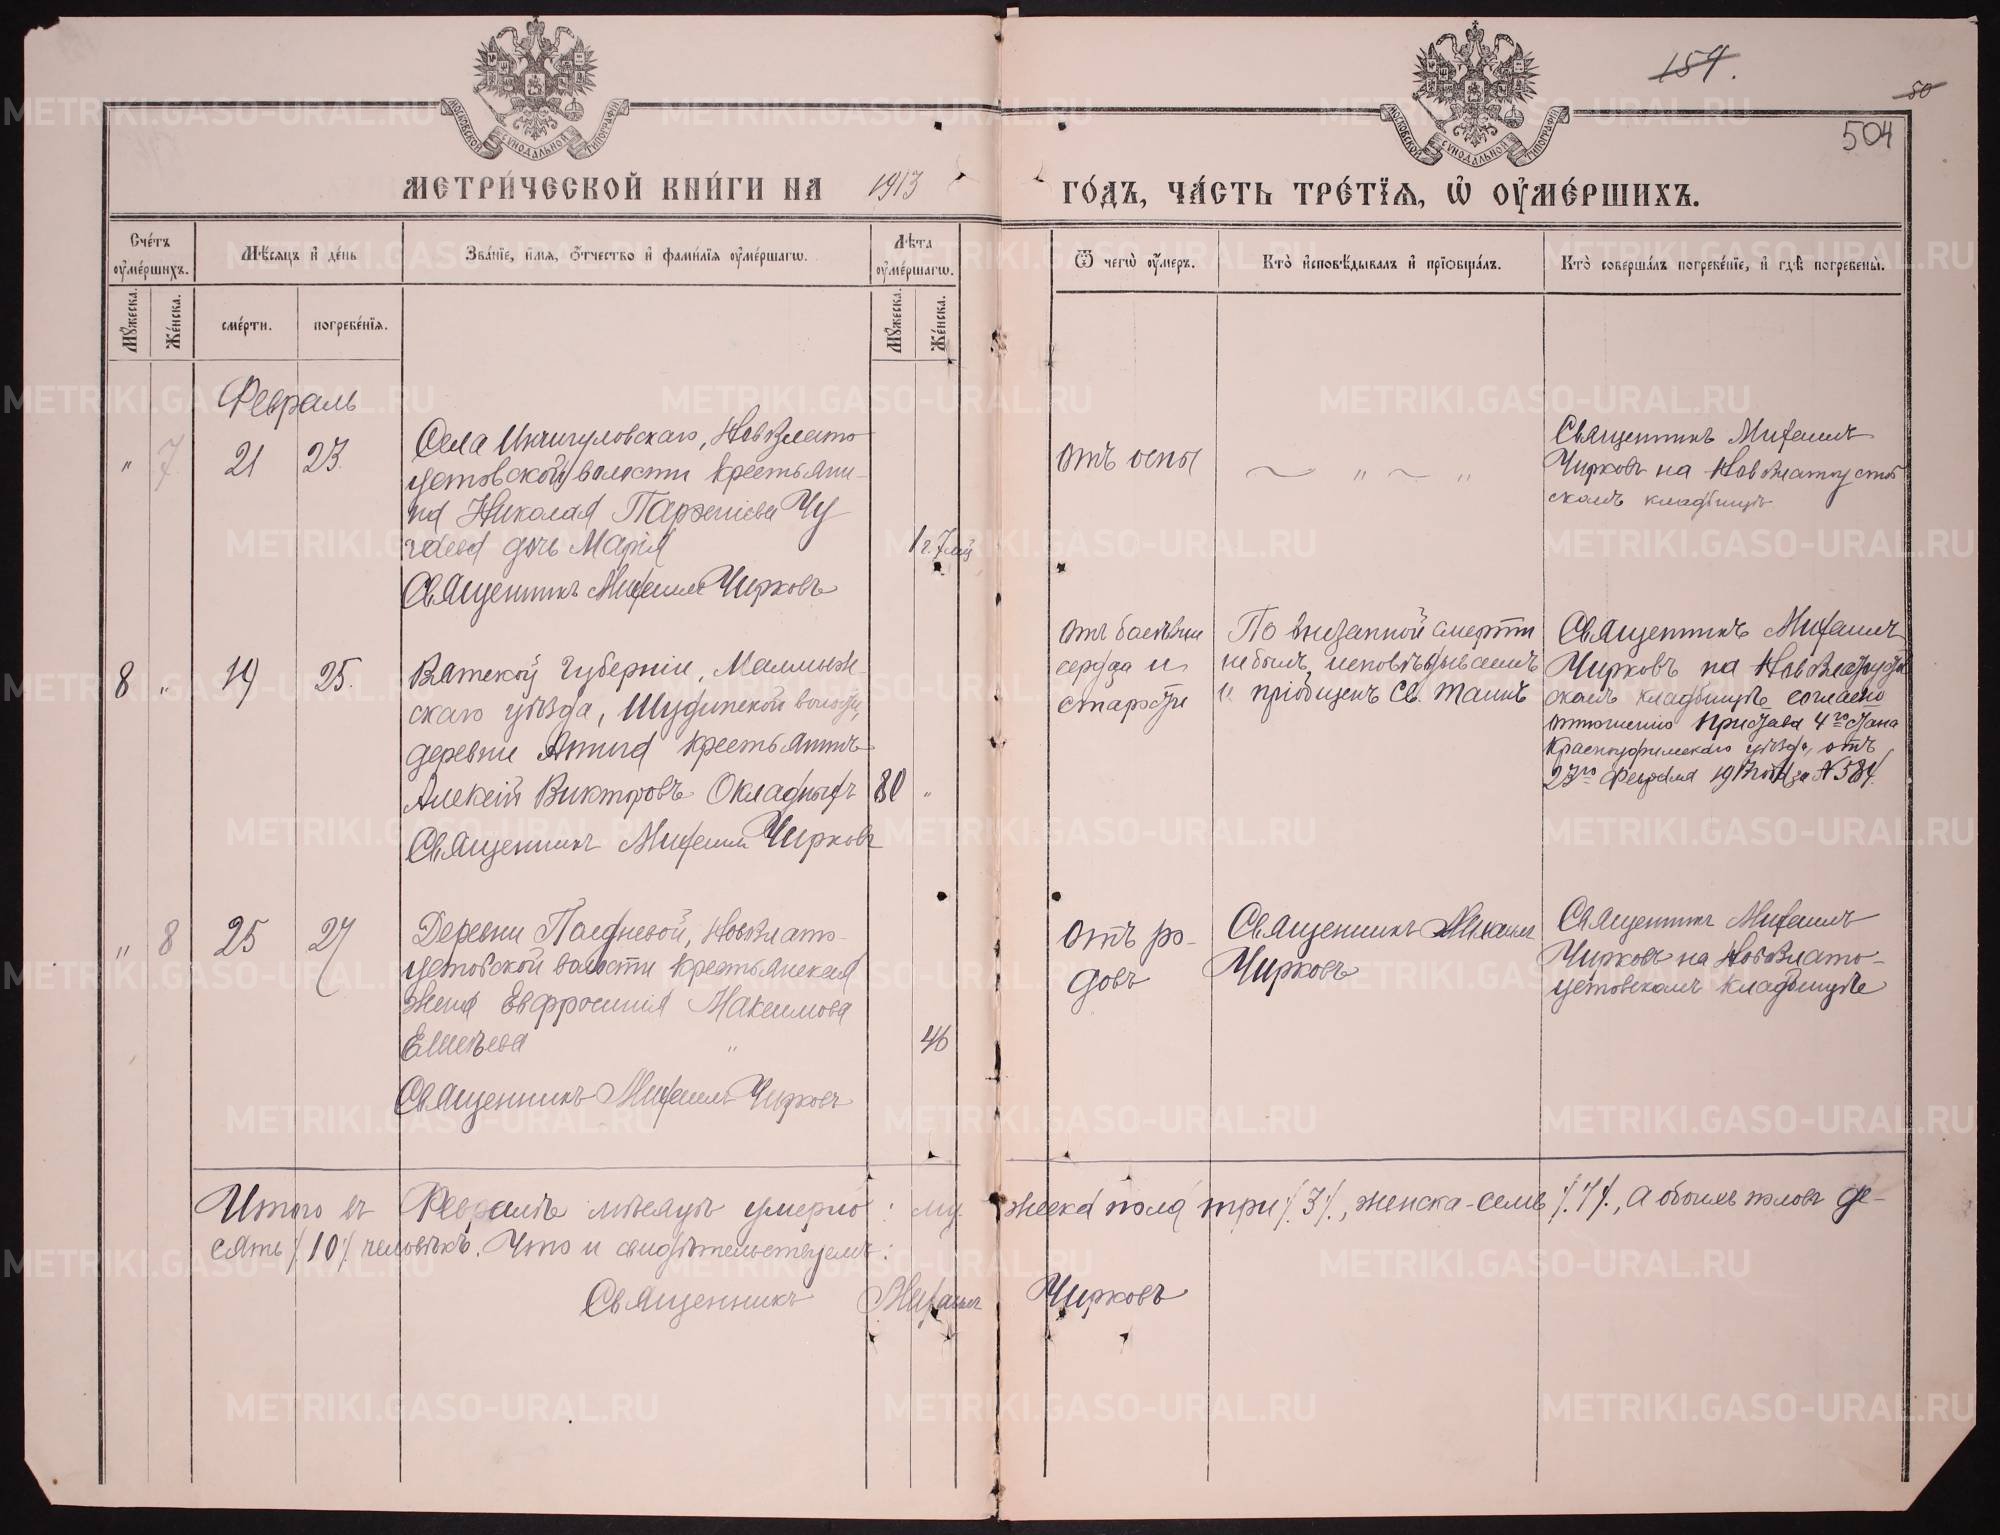 154.
50
504
МОСКОВСКОЙ СѴНОДАЛЬНОЙ ТИПОГРАФІИ
МОСКОВСКОЙ СѴНОДАЛЬНОЙ ТИПОГРАФІИ
МЕТРИ́ЧЕСКОЙ КНИ́ГИ НА 1913 ГО́ДЪ, ЧА́СТЬ ТРЕ́ТЇѦ, Ѡ҆ ОУ҆МЕ́РШИХЪ.
Сче́тъ оу҆ме́ршихъ.
Мѣ́сѧцъ и҆ де́нь
Зва́нїе, и҆́мѧ, ѻ҆́тчество и҆ фами́лїѧ оу҆ме́ршагѡ.
Лѣ́та оу҆ме́ршагѡ.
Ѿ чегѡ̀ оу҆́меръ.
Кто̀ и҆сповѣ́дывалъ и҆ прїѡбща́лъ.
Кто̀ соверша́лъ погребе́нїе, и҆ гдѣ̀ погребены̀.
Мꙋ́жеска.
Же́нска.
сме́рти.
погребе́нїѧ.
Мꙋ́жеска.
Же́нска.
Февраль
" 7 21 23.
Села Ничигуловскаго, Новозлато
устовской волости крестьяни-
на Николая Парѳеніева Чу
дочь Марія
1 г. 7 мц
Священникъ Михаилъ Чирковъ
отъ оспы
" "
Священникъ Михаилъ
Чирковъ на Новозлатоустов
скомъ кладбищѣ
8 " 19 25.
Вятской губерніи, Малмыж-
скаго уѣзда, Шудинской волости,
деревни крестьянинъ
Алексѣй Викторовъ Окладныхъ
80 "
Священникъ Михаилъ Чирковъ
отъ болѣзни
сердца и
старости
По внезапной смерти
не былъ исповѣдываемъ
и пріобщенъ Св. Таинъ
Священникъ Михаилъ
Чирковъ на Новозлатоустов
скомъ кладбищѣ согласно
отношенію Пристава 4го стана
Красноуфимскаго уѣзда, отъ
23го Февраля 1913 года за № 584.
" 8 25 27
Деревни Полдневой, Новозлато-
устовской волости крестьянская
жена Евфросинія Максимова
Елисѣева "
46
Священникъ Михаилъ Чирковъ
отъ ро-
довъ
Священникъ Михаилъ
Чирковъ
Священникъ Михаилъ
Чирковъ на Новозлато-
устовскомъ кладбищѣ
Итого въ Февралѣ мѣсяцѣ умерло: му жеска пола три /.3/., женска-семь /.7/., а обоихъ половъ де-
сять /.10/. человѣкъ. Что и свидѣтельствуемъ:
Священникъ Михаилъ Чирковъ
METRIKI.GASO-URAL.RU